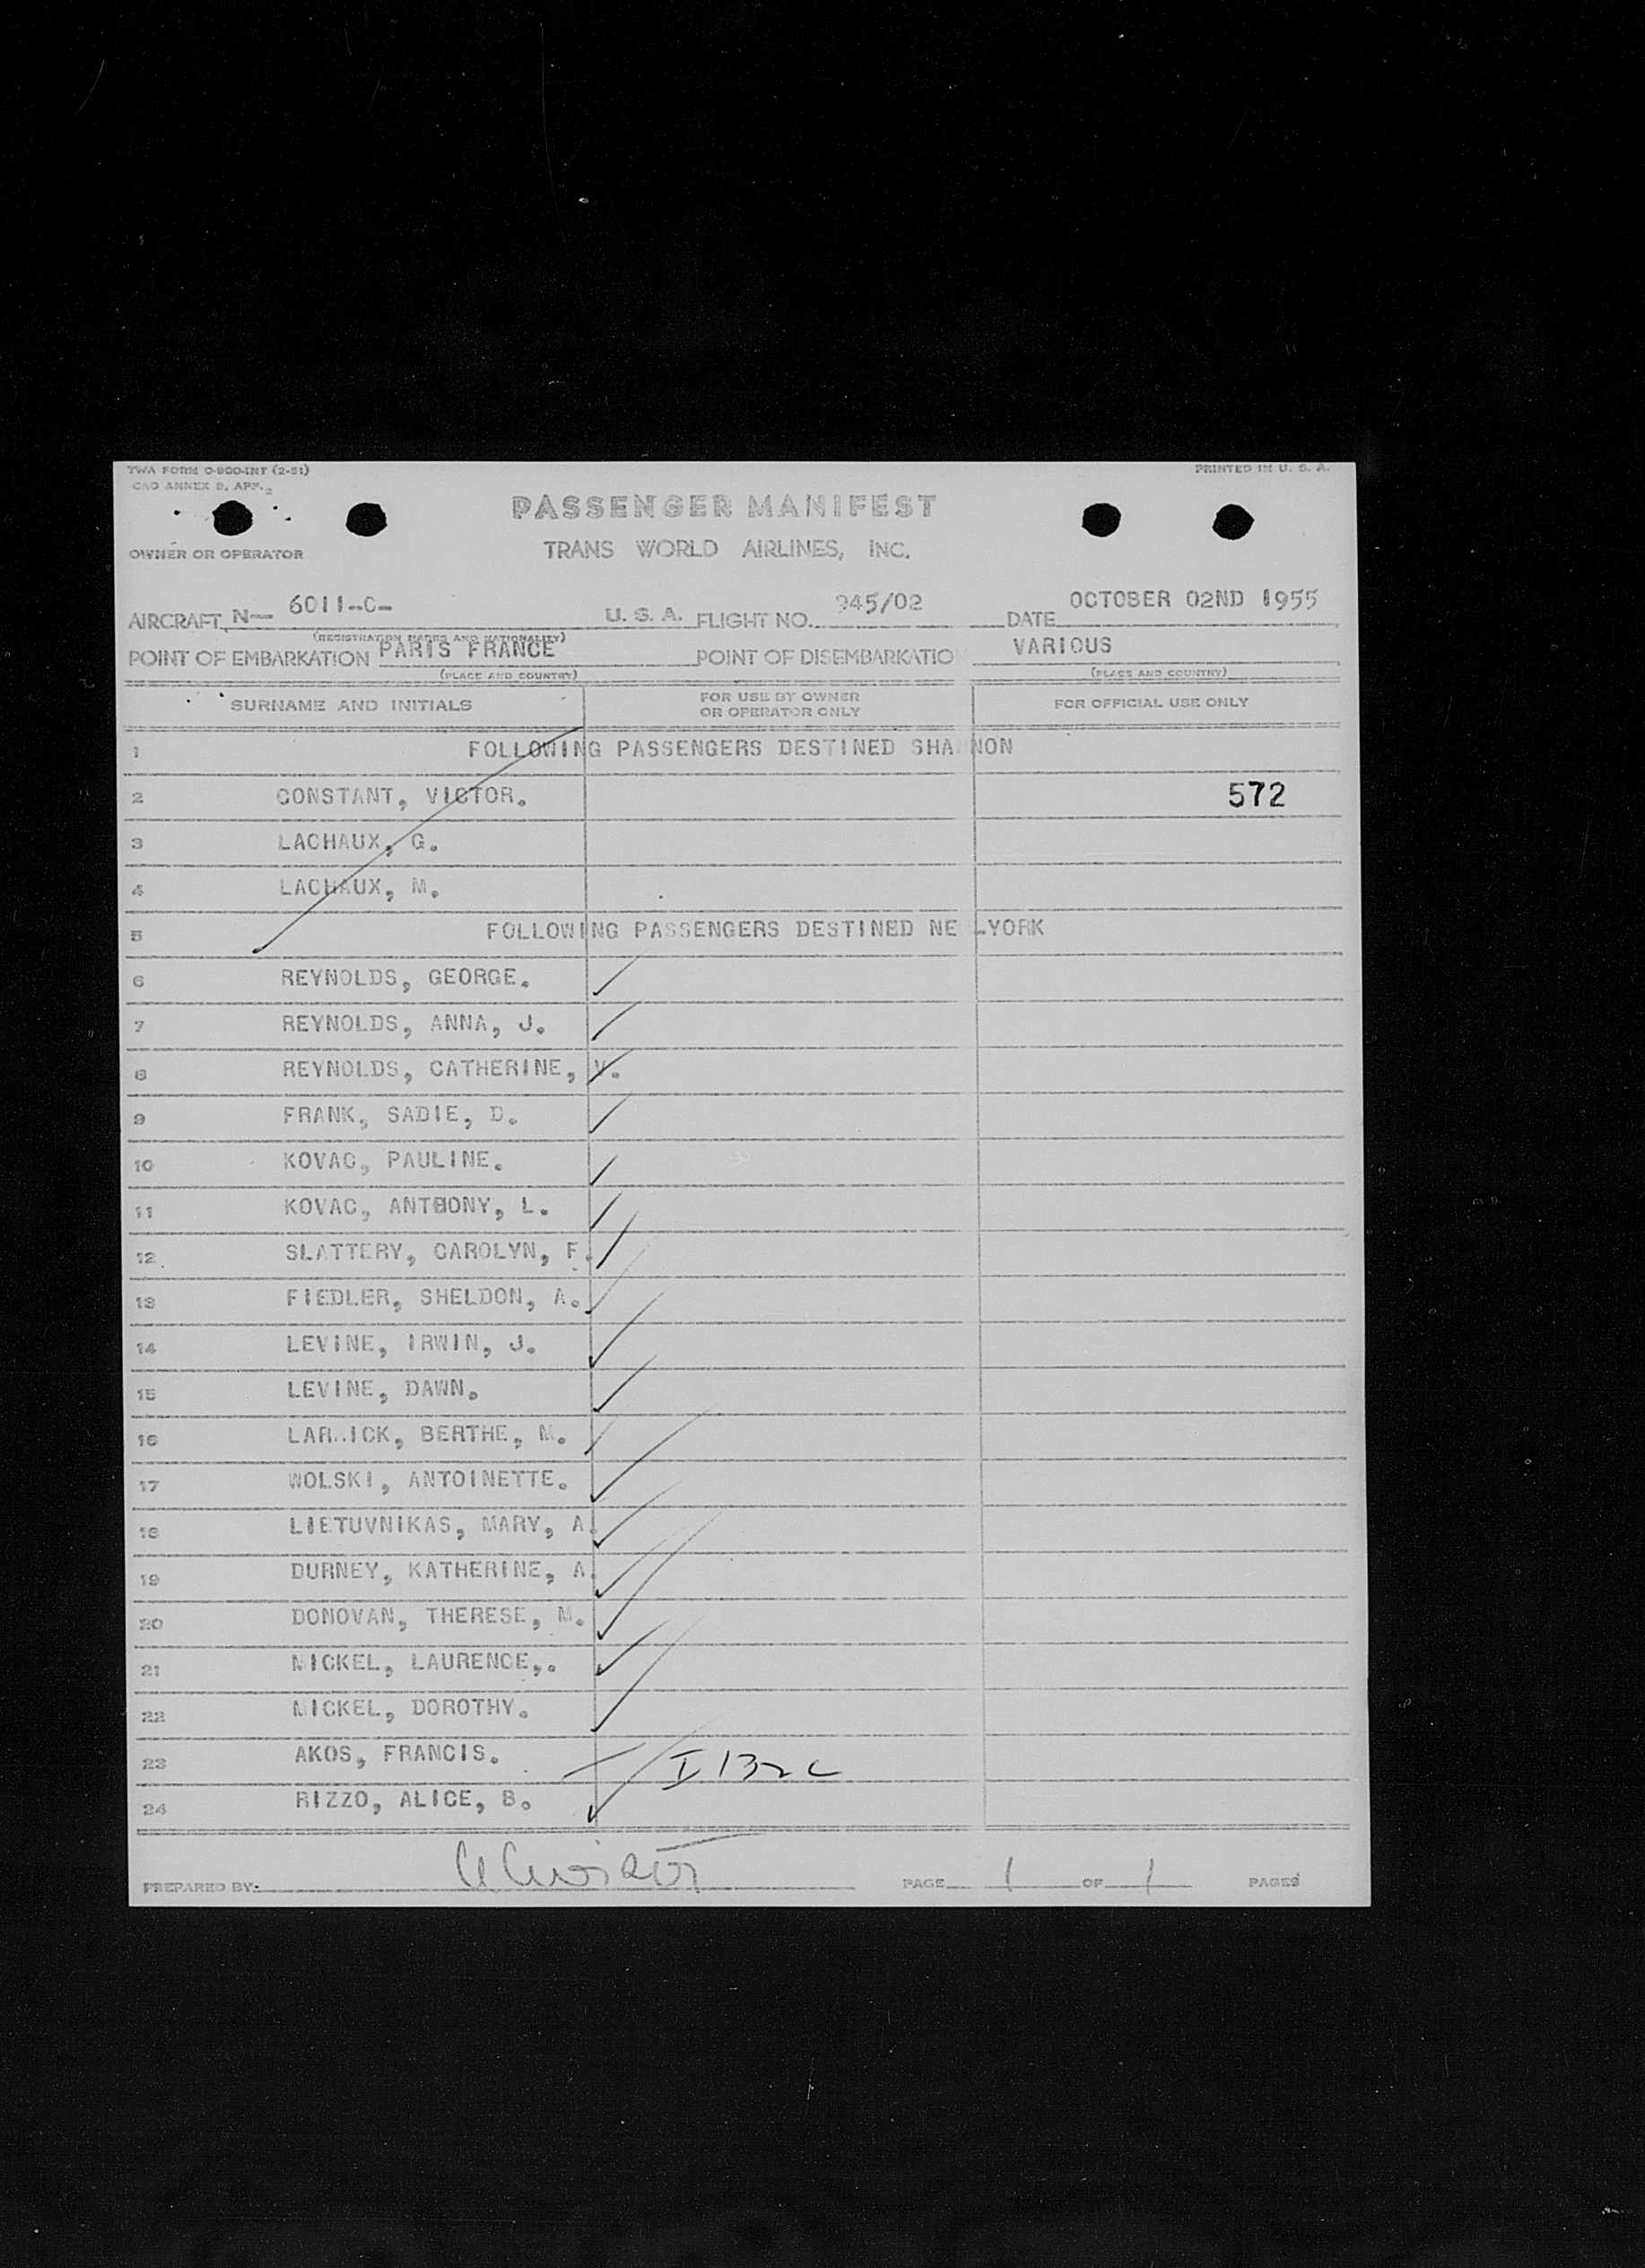 TWA FORM O-900-INT (2-51)
PRINTED IN U. S. A.
CAO ANNEX 9, APP. 2
PASSENGER MANIFEST
OWNER OR OPERATOR
TRANS WORLD AIRLINES, INC.
AIRCRAFT N— 6011--C- U. S. A. FLIGHT NO. 945/02 DATE OCTOBER 02ND 1955
(REGISTRATION MARKS AND NATIONALITY)
POINT OF EMBARKATION PARIS FRANCE POINT OF DISEMBARKATIO VARIOUS
(PLACE AND COUNTRY) (PLACE AND COUNTRY)
SURNAME AND INITIALS FOR USE BY OWNER OR OPERATOR ONLY FOR OFFICIAL USE ONLY
1 FOLLOWING PASSENGERS DESTINED SHANNON
2 CONSTANT, VICTOR. 572
3 LACHAUX, G.
4 LACHAUX, M.
5 FOLLOWING PASSENGERS DESTINED NE -YORK
6 REYNOLDS, GEORGE.
7 REYNOLDS, ANNA, J.
8 REYNOLDS, CATHERINE, V.
9 FRANK, SADIE, D.
10 KOVAC, PAULINE.
11 KOVAC, ANTHONY, L.
12 SLATTERY, CAROLYN, F.
13 FIEDLER, SHELDON, A.
14 LEVINE, IRWIN, J.
15 LEVINE, DAWN.
16 BERTHE, M.
17 WOLSKI, ANTOINETTE.
18 LIETUVNIKAS, MARY, A.
19 DURNEY, KATHERINE, A.
20 DONOVAN, THERESE, M.
21 LAURENCE,.
22 DOROTHY.
23 AKOS, FRANCIS. I 132 C
24 RIZZO, ALICE, B.
PREPARED BY: PAGE 1 OF 1 PAGES